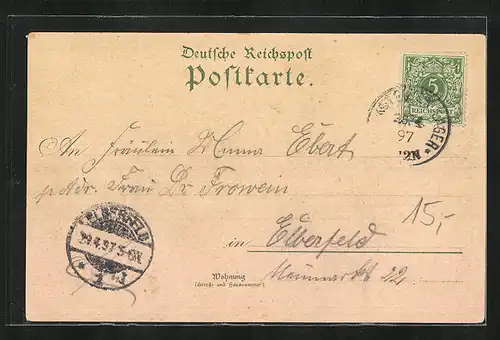 Deutsche Reichspost
Postkarte.
5
REICHSPOST
97
An Fräulein Emma Ebert
p. Adr. Frau Dr Frowein
15,-
ELBERFELD
29.4.97.5-6N.
in Elberfeld
Wohnung
(Straße und Hausnummer)
Neumarkt 22.